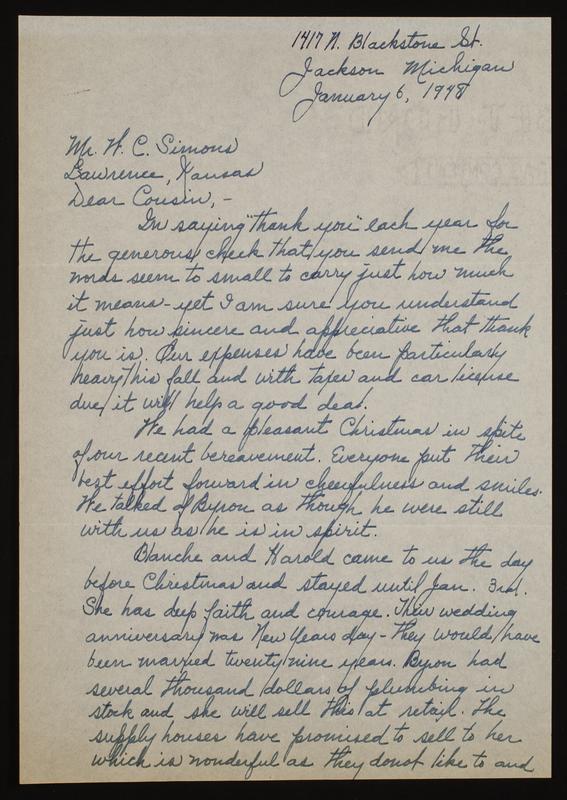 1417 N. Blackstone St.
Jackson Michigan
January 6, 1948
Mr. W. C. Simons
Lawrence, Kansas
Dear Cousin, -
In saying "thank you" each year for
the generous check that you send me the
words seem to small to carry just how much
it means - yet I am sure you understand
just how sincere and appreciative that thank
you is. Our expenses have been particularly
heavy this fall and with taxes and car license
due, it will help a good deal.
We had a pleasant Christmas in spite
of our recent bereavement. Everyone put their
best effort forward in cheerfulness and smiles.
We talked of Byron as though he were still
with us as he is in spirit.
Blanche and Harold came to us the day
before Christmas and stayed until Jan. 3rd.
She has deep faith and courage. Their wedding
anniversary was New Years day - they would have
been married twenty nine years. Byron had
several thousand dollars of plumbing in
stock and she will sell this at retail. The
supply houses have promised to sell to her
which is wonderful as they donot like to and